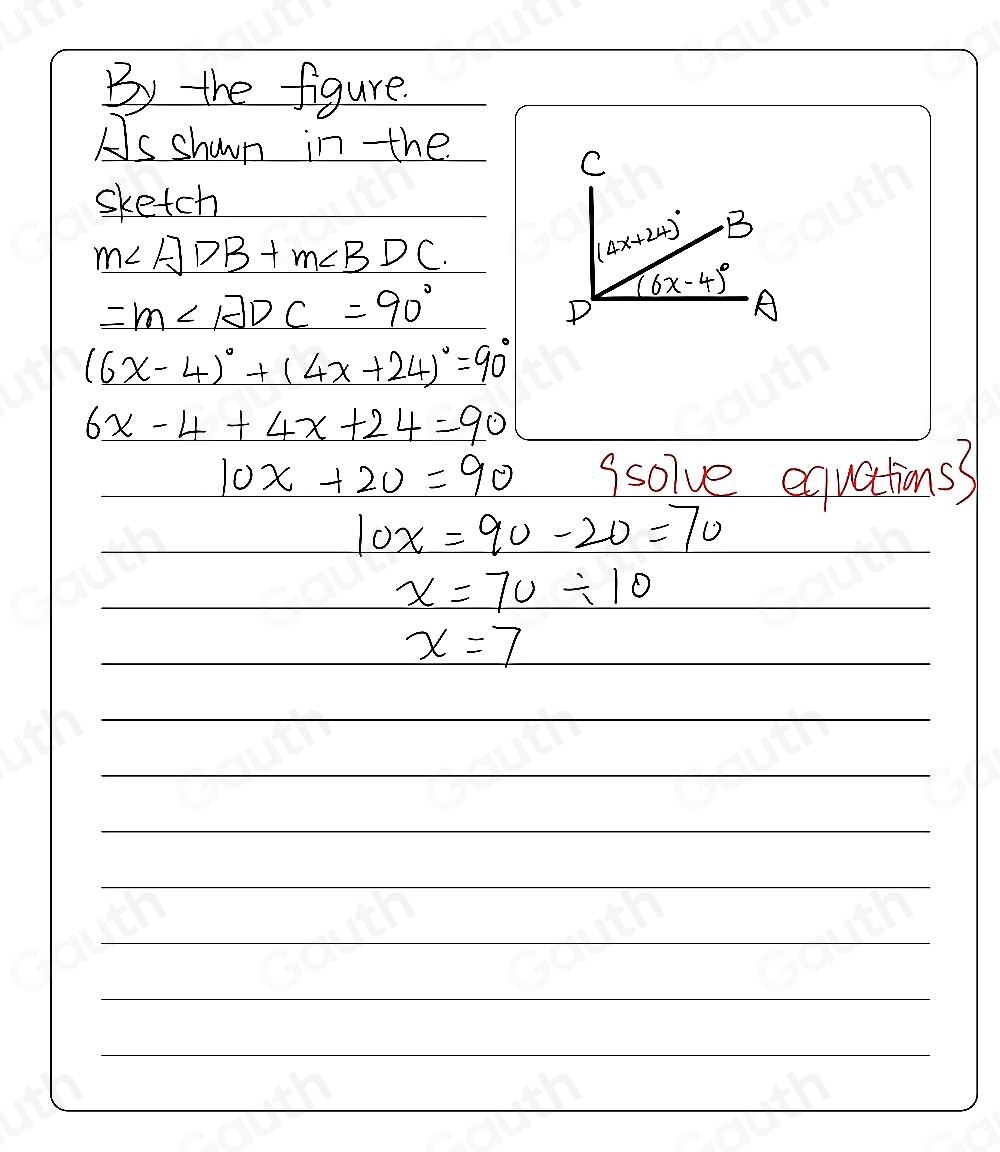 By the figure.
As shown in the
sketch
m<ADB + m<BDC.
=m<ADC = 90°
(6x-4)° + (4x+24)° = 90°
6x - 4 + 4x + 24 = 90
10x + 20 = 90 {solve equations}
10x = 90 - 20 = 70
x = 70 ÷ 10
x = 7
C
(4x+24)°
B
(6x-4)°
D
A
Gauth